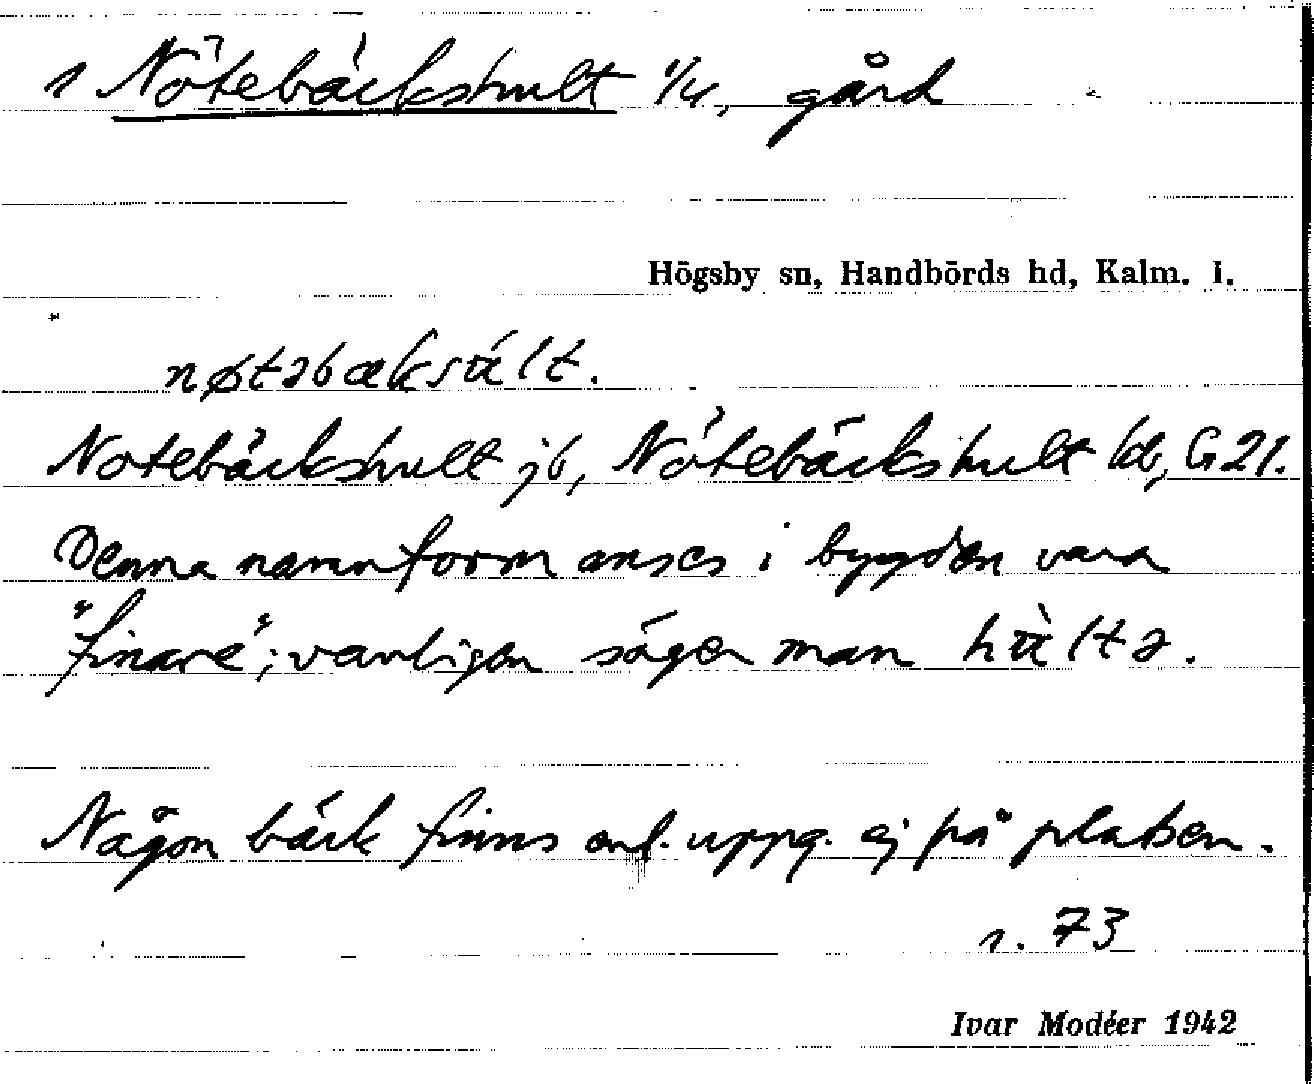 1 Nötebäckshult 1/4, gård
Högsby sn, Handbörds hd, Kalm. l.
nøtəbæksúlt.
Notebäckshult jb, Nötebäckshult kb, G 21.
Denna namnform anses i bygden vara
"finare"; vanligen säger man hùltə.
Någon bäck finns enl. uppg. ej på platsen.
r. 73
Ivar Modéer 1942